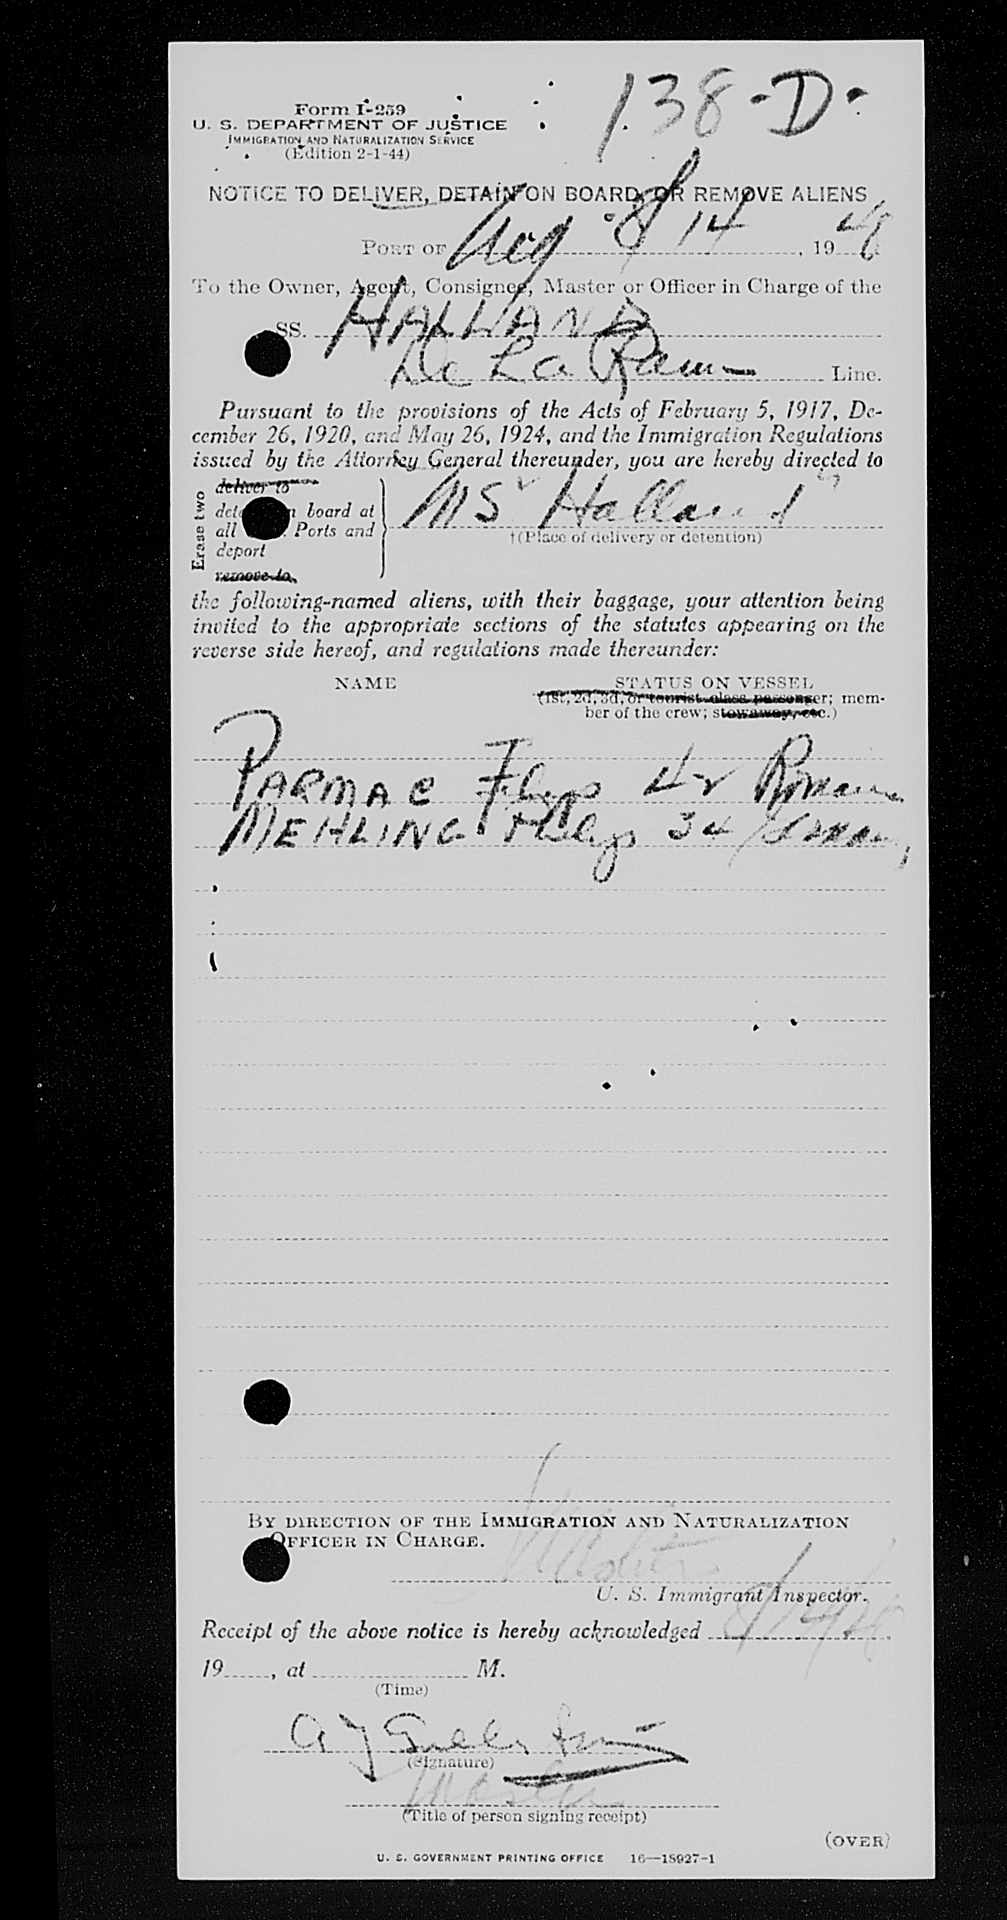 138-D.
Form I-259
U. S. DEPARTMENT OF JUSTICE
IMMIGRATION AND NATURALIZATION SERVICE
(Edition 2-1-44)
NOTICE TO DELIVER, DETAIN ON BOARD, OR REMOVE ALIENS
PORT OF 8/14, 1948
To the Owner, Agent, Consignee, Master or Officer in Charge of the
SS. HALLAND
De La Line.
Pursuant to the provisions of the Acts of February 5, 1917, De-
cember 26, 1920, and May 26, 1924, and the Immigration Regulations
issued by the Attorney General thereunder, you are hereby directed to
Erase two
deliver to
board at
all Ports and
deport
remove to
MS "Halland"
†(Place of delivery or detention)
the following-named aliens, with their baggage, your attention being
invited to the appropriate sections of the statutes appearing on the
reverse side hereof, and regulations made thereunder:
NAME STATUS ON VESSEL
(1st, 2d, 3d, or tourist class passenger; mem-
ber of the crew; stowaway, etc.)
PARMAC 42
MEHLING 34
BY DIRECTION OF THE IMMIGRATION AND NATURALIZATION
OFFICER IN CHARGE.
U. S. Immigrant Inspector.
Receipt of the above notice is hereby acknowledged 8/14/48
19....., at M.
(Time)
(Signature)
Master
(Title of person signing receipt)
(OVER)
U. S. GOVERNMENT PRINTING OFFICE 16—18927-1